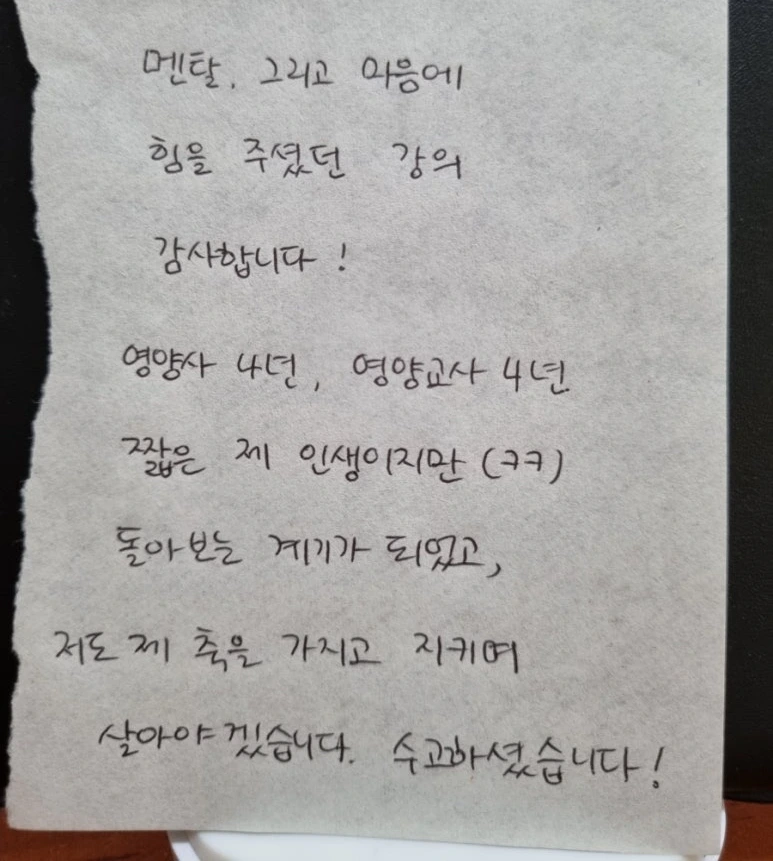 멘탈, 그리고 마음에
힘을 주셨던 강의
감사합니다!
영양사 4년, 영양교사 4년
짧은 제 인생이지만 (ㅋㅋ)
돌아보는 계기가 되었고,
저도 제 축을 가지고 지키며
살아야겠습니다. 수고하셨습니다!